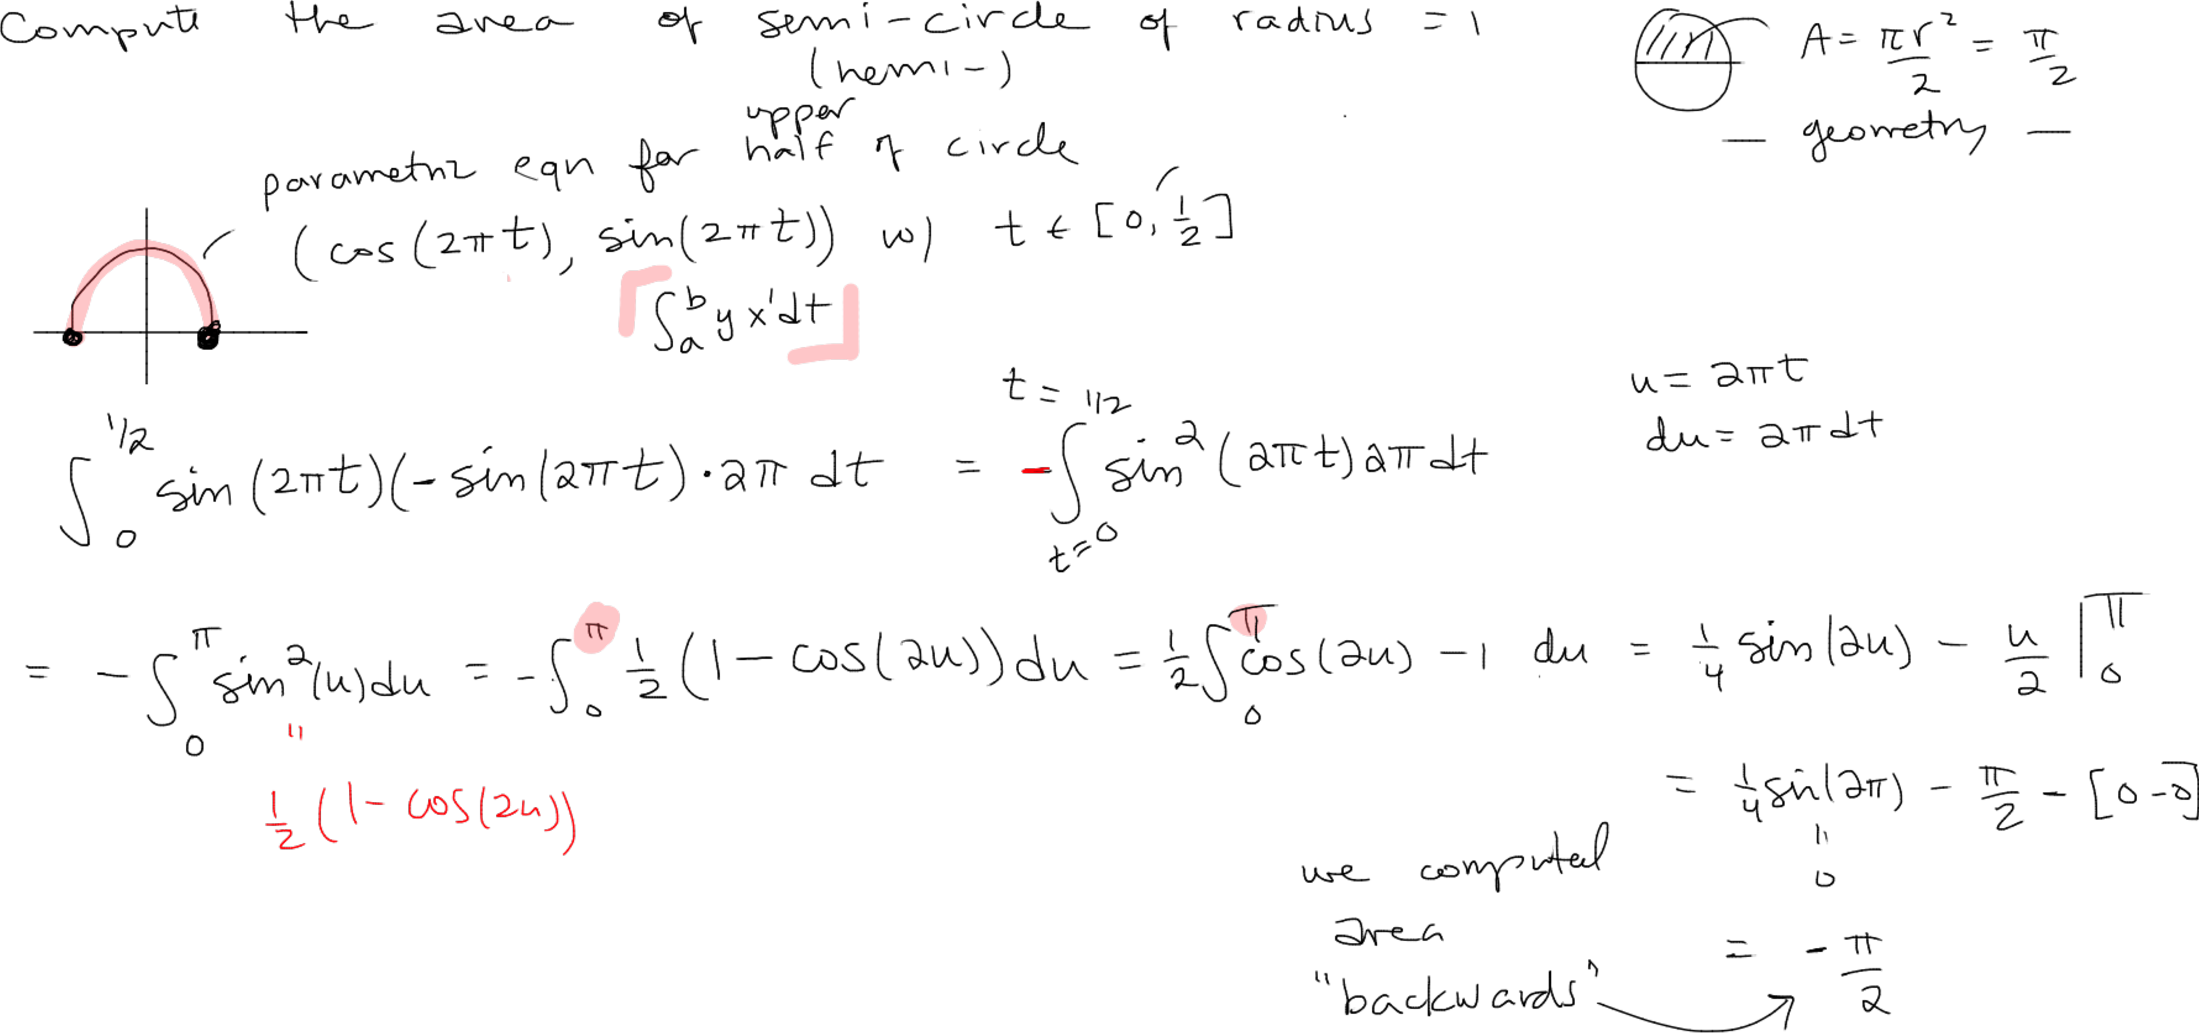 Compute the area of semi-circle of radius = 1
(hemi-)
A = πr²/2 = π/2
— geometry —
parametric eqn for upper half of circle
(cos(2πt), sin(2πt)) w/ t ∈ [0, 1/2]
∫_a^b y x' dt
u = 2πt
du = 2π dt
∫_0^{1/2} sin(2πt)(-sin(2πt)·2π dt = -∫_{t=0}^{t=1/2} sin²(2πt) 2π dt
= -∫_0^π sin²(u) du = -∫_0^π 1/2 (1 - cos(2u)) du = 1/2 ∫_0^π cos(2u) - 1 du = 1/4 sin(2u) - u/2 |_0^π
"
1/2 (1 - cos(2u))
= 1/4 sin(2π) - π/2 - [0-0]
"
0
= -π/2
we computed
area
"backwards"